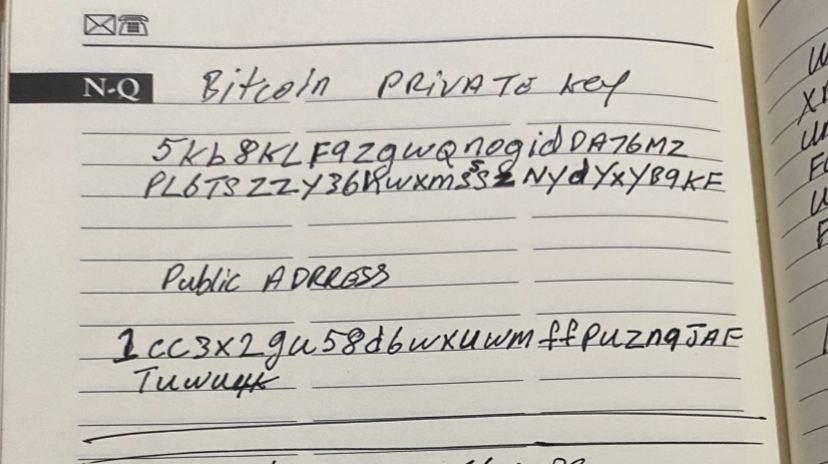 N-Q Bitcoin PRiVATE key
5Kb8KLF9ZgwQnogidDA76MZ
PL6TSZZY36hwxmssSzNYdYxYB9KF
Public ADRRESS
1cc3x2gu58d6wxuwmffpuzn9JAF